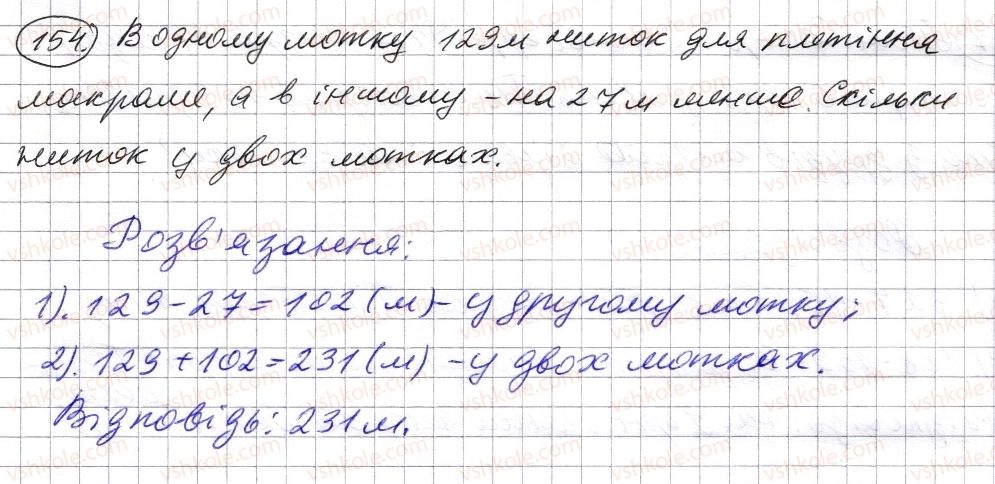 154.) В одному мотку 129 м ниток для плетіння
макраме, а в іншому - на 27 м менше. Скільки
ниток у двох мотках.
Розв'язання:
1). 129 - 27 = 102 (м) - у другому мотку;
2). 129 + 102 = 231 (м) - у двох мотках.
Відповідь: 231 м.